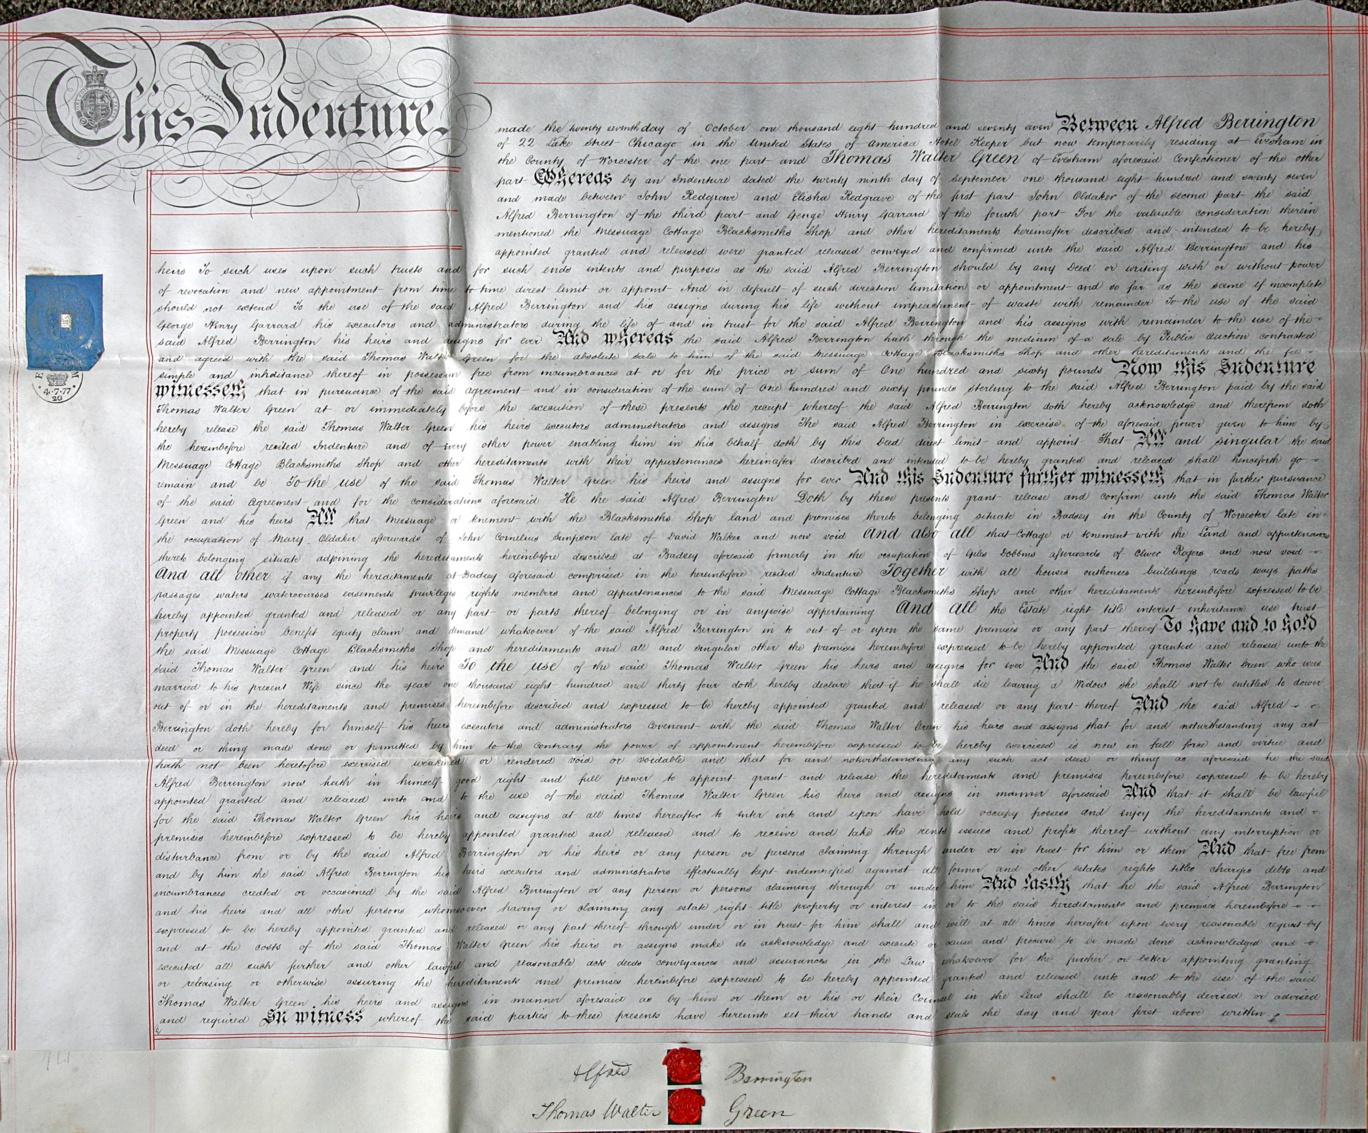 This Indenture
made the twenty seventh day of October one thousand eight hundred and seventy seven Between Alfred Berrington
of 22 Lake Street Chicago in the United States of America Hotel Keeper but now temporarily residing at Evesham in
the County of Worcester of the one part and Thomas Walter Green of Evesham aforesaid Confectioner of the other
part Whereas by an Indenture dated the twenty ninth day of September one thousand eight hundred and seventy seven
and made between John Redgrave and Elisha Redgrave of the first part John Oldaker of the second part the said
Alfred Berrington of the third part and George Henry Garrard of the fourth part For the valuable consideration therein
mentioned the Messuage Cottage Blacksmiths Shop and other hereditaments hereinafter described and intended to be hereby
appointed granted and released were granted released conveyed and confirmed unto the said Alfred Berrington and his
heirs To such uses upon such trusts and for such ends intents and purposes as the said Alfred Berrington should by any Deed or writing with or without power
of revocation and new appointment from time to time direct limit or appoint And in default of such direction limitation or appointment and so far as the same if incomplete
should not extend To the use of the said Alfred Berrington and his assigns during his life without impeachment of waste with remainder To the use of the said
George Henry Garrard his executors and administrators during the life of and in trust for the said Alfred Berrington and his assigns with remainder to the use of the
said Alfred Berrington his heirs and assigns for ever And whereas the said Alfred Berrington hath through the medium of a sale by Public Auction contracted
and agreed with the said Thomas Walter Green for the absolute sale to him of the said Messuage Cottage Blacksmiths Shop and other hereditaments and the fee
simple and inheritance thereof in possession free from incumbrances at or for the price or sum of One hundred and sixty pounds Now this Indenture
witnesseth that in pursuance of the said agreement and in consideration of the sum of One hundred and sixty pounds sterling to the said Alfred Berrington paid by the said
Thomas Walter Green at or immediately before the execution of these presents the receipt whereof the said Alfred Berrington doth hereby acknowledge and therefrom doth
hereby release the said Thomas Walter Green his heirs executors administrators and assigns The said Alfred Berrington in exercise of the aforesaid power given to him by
the hereinbefore recited Indenture and of every other power enabling him in this behalf doth by this Deed direct limit and appoint That All and singular the said
Messuage Cottage Blacksmiths Shop and other hereditaments with their appurtenances hereinafter described and intended to be hereby granted and released shall henceforth go
remain and be To the use of the said Thomas Walter Green his heirs and assigns for ever And this Indenture further witnesseth that in further pursuance
of the said Agreement and for the consideration aforesaid He the said Alfred Berrington Doth by these presents grant release and confirm unto the said Thomas Walter
Green and his heirs All that Messuage or tenement with the Blacksmiths Shop land and premises thereto belonging situate in Badsey in the County of Worcester late in
the occupation of Mary Oldaker afterwards of John Cornelius Simpson late of David Walker and now void And also all that Cottage or tenement with the Land and appurtenances
thereto belonging situate adjoining the hereditaments hereinbefore described at Badsey aforesaid formerly in the occupation of Giles Dobbins afterwards of Oliver Rogers and now void
And all other if any the hereditaments at Badsey aforesaid comprised in the hereinbefore recited Indenture Together with all houses outhouses buildings roads ways paths
passages waters watercourses easements privileges rights members and appurtenances to the said Messuage Cottage Blacksmiths Shop and other hereditaments hereinbefore expressed to be
hereby appointed granted and released or any part or parts thereof belonging or in anywise appertaining And All the Estate right title interest inheritance use trust
property possession benefit equity claim and demand whatsoever of the said Alfred Berrington in to out of or upon the same premises or any part thereof To have and to hold
the said Messuage Cottage Blacksmiths Shop and hereditaments and all and singular other the premises hereinbefore expressed to be hereby appointed granted and released unto the
said Thomas Walter Green and his heirs To the use of the said Thomas Walter Green his heirs and assigns for ever And the said Thomas Walter Green who was
married to his present Wife since the year one thousand eight hundred and thirty four doth hereby declare that if he shall die leaving a Widow she shall not be entitled to dower
out of or in the hereditaments and premises hereinbefore described and expressed to be hereby appointed granted and released or any part thereof And the said Alfred
Berrington doth hereby for himself his heirs executors and administrators Covenant with the said Thomas Walter Green his heirs and assigns that for and notwithstanding any act
deed or thing made done or permitted by him to the contrary the power of appointment hereinbefore expressed to be hereby exercised is now in full force and virtue and
hath not been heretofore exercised weakened or rendered void or voidable and that for and notwithstanding any such act deed or thing as aforesaid he the said
Alfred Berrington now hath in himself good right and full power to appoint grant and release the hereditaments and premises hereinbefore expressed to be hereby
appointed granted and released unto and to the use of the said Thomas Walter Green his heirs and assigns in manner aforesaid And that it shall be lawful
for the said Thomas Walter Green his heirs and assigns at all times hereafter to enter into and upon have hold occupy possess and enjoy the hereditaments and
premises hereinbefore expressed to be hereby appointed granted and released and to receive and take the rents issues and profits thereof without any interruption or
disturbance from or by the said Alfred Berrington or his heirs or any person or persons claiming through under or in trust for him or them And that free from
and by him the said Alfred Berrington his heirs executors and administrators effectually kept indemnified against all former and other estates rights titles charges debts and
incumbrances created or occasioned by the said Alfred Berrington or any person or persons claiming through or under him And lastly that he the said Alfred Berrington
and his heirs and all other persons whomsoever having or claiming any estate right title property or interest in or to the said hereditaments and premises hereinbefore
expressed to be hereby appointed granted and released or any part thereof through under or in trust for him shall and will at all times hereafter upon every reasonable request by
and at the costs of the said Thomas Walter Green his heirs or assigns make do acknowledge and execute or cause and procure to be made done acknowledged and
executed all such further and other lawful and reasonable acts deeds conveyances and assurances in the Law whatsoever for the further or better appointing granting
or releasing or otherwise assuring the hereditaments and premises hereinbefore expressed to be hereby appointed granted and released unto and to the use of the said
Thomas Walter Green his heirs and assigns in manner aforesaid as by him or them or his or their Counsel in the Law shall be reasonably devised or advised
and required In witness whereof the said parties to these presents have hereunto set their hands and seals the day and year first above written
4.7.77
20
Alfred Berrington
Thomas Walter Green